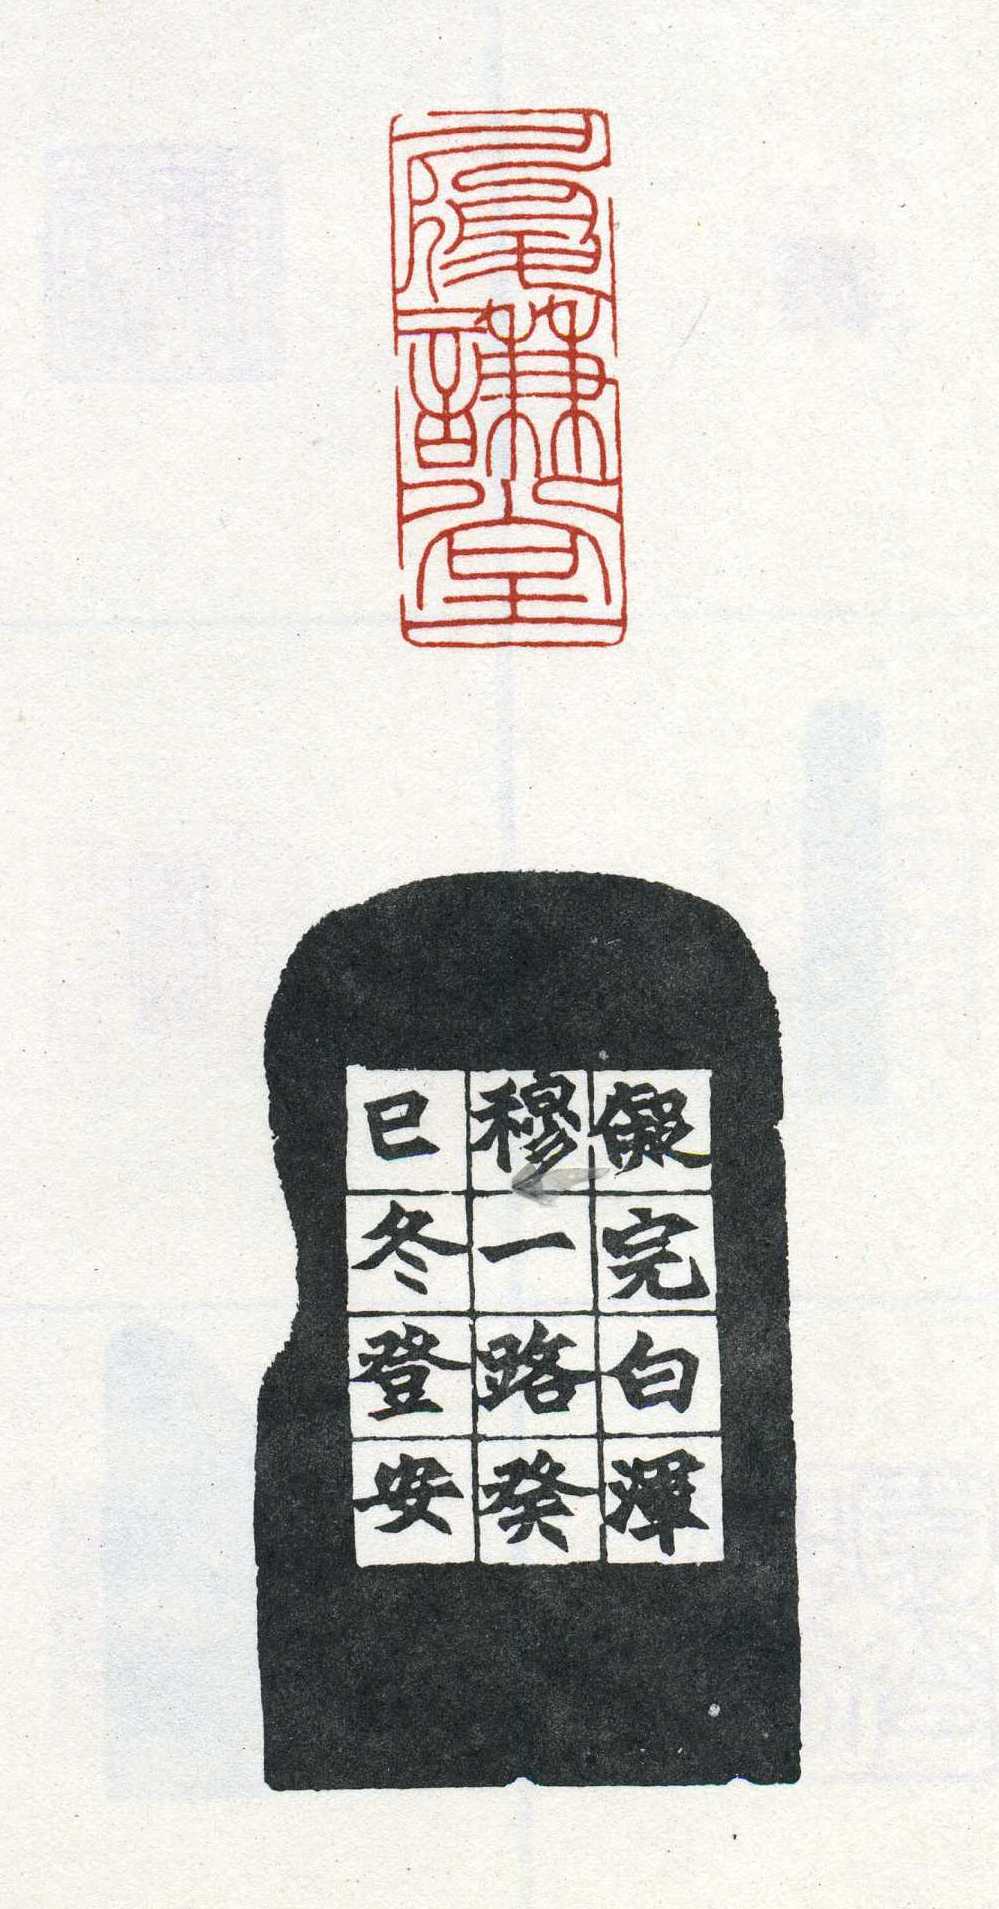 謙堂
儗完白渾
穆一路癸
巳冬登安